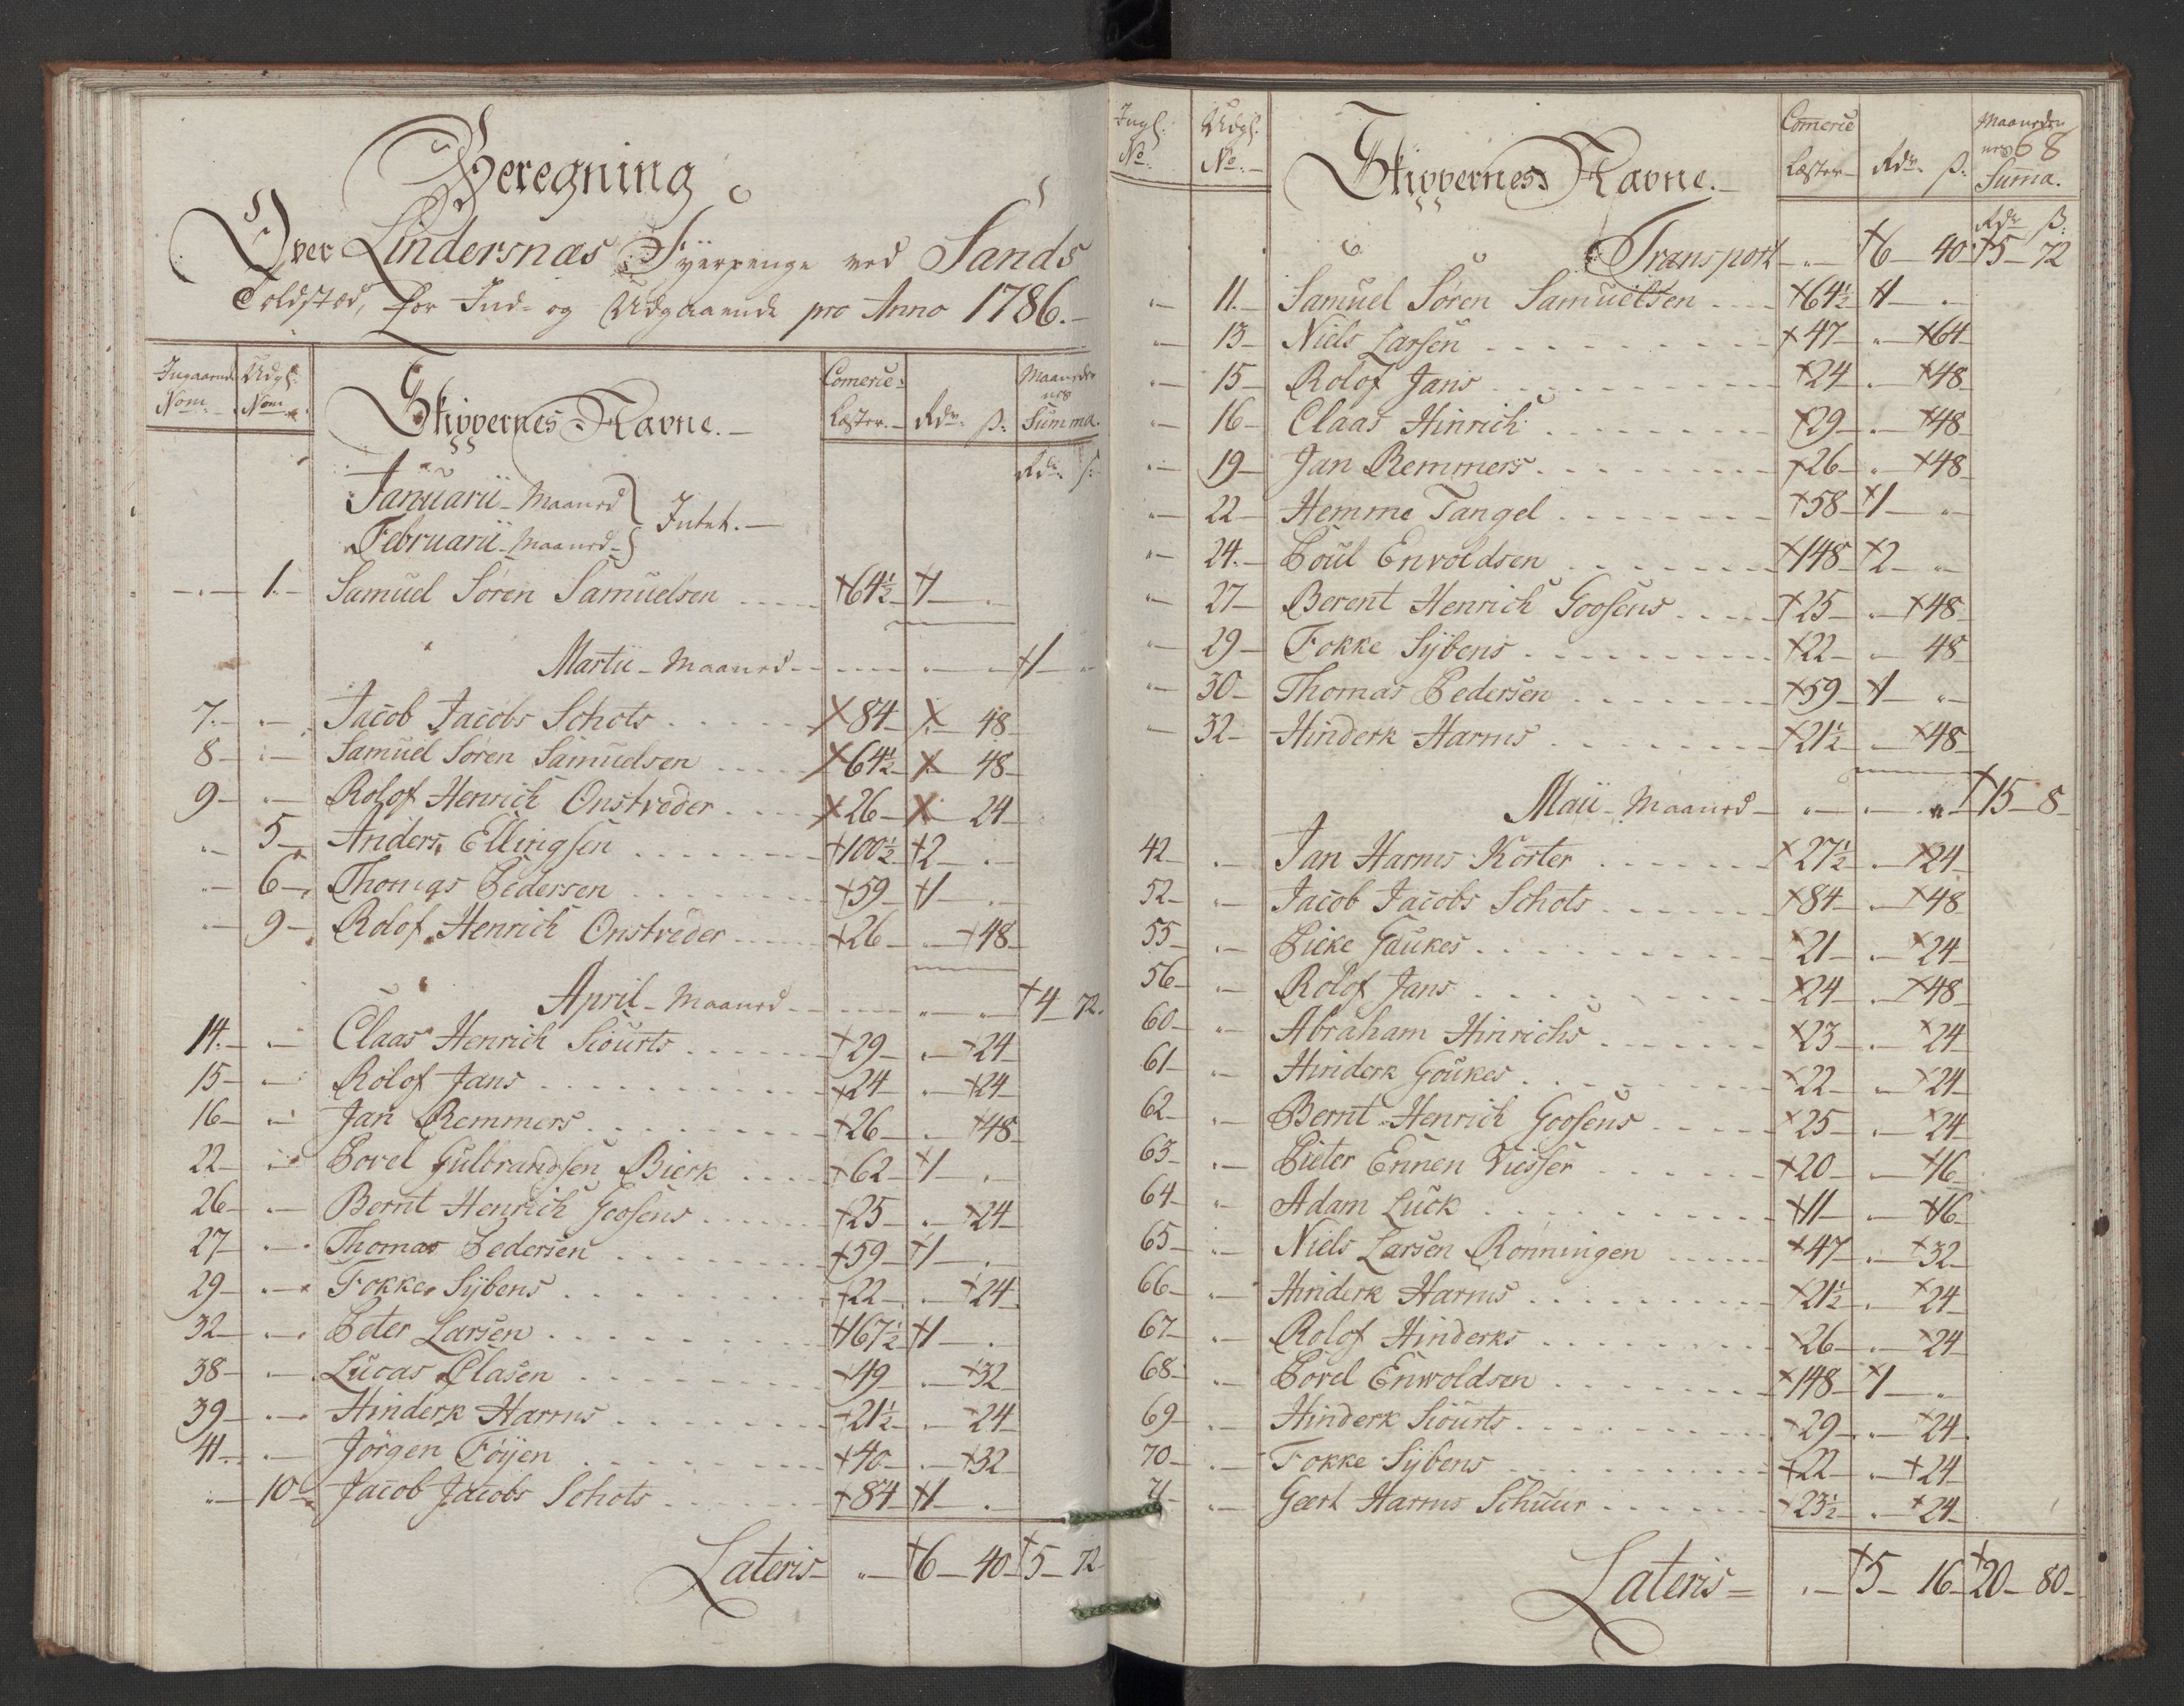 Beregning
Over Lindersnæs Fyerpenge ved Sands
Toldstæd, for Ind- og Udgaaende pro Anno 1786.-
Ingaaende Nom. Udgl: Nom. Skippernes Navne.- Comerce Læster.- Rdr. ß: Maanedernes Summa.
Rdr. ß.
Januarii - Maaned } Intet.-
Februarii - Maaned - }
1.- Samuel Sören Samuelsen 64½ 1
Martii - Maaned - 1
7.- Jacob Jacobs Schots 84 48
8- Samuel Sören Samuelsen 64½ 48
9- Rolof Henrich Onstveder 26 24
5- Anders Ellingsen 100½ 2
6- Thomas Pedersen 59 1
9- Rolof Henrich Onstveder 26 48
April - Maaned - 4 72.
14.- Claas Henrich Siourts 29 24
15- Rolof Jans 24 24
16- Jan Remmers 26 48
22- Povel Gulbrandsen Bierk 62 1
26- Bernt Henrich Goosens 25 24
27- Thomas Pedersen 59 1
29- Fokke Sÿbens 22 24
32- Peter Larsen 167½ 1
38- Lucas Clasen 49 32
39- Hinderk Harms 21½ 24
41- Jörgen Föÿen 40 32
10- Jacob Jacobs Schots 84 1
Lateris- 6 40 5 72
Ingl: No. Udgl: No.- Skippernes Navne.- Comerce Læster- Rdr. ß: Maanedernes Summa.
68
Rdr ß:
Transport 6 40 5 72
11.- Samuel Sören Samuelsen 64½ 1
13- Niels Larsen 47 64
15- Rolof Jans 24 48
16- Claas Hinrich 29 48
19- Jan Remmers 26 48
22- Hemme Tangel 58 1
24.- Poul Envoldsen 148 2
27- Berent Henrich Goosens 25 48
29- Fokke Sÿbens 22 48
30- Thomas Pedersen 59 1
32- Hinderk Harms 21½ 48
Maii - Maaned - 15 8
42- Jan Harms Korter 27½ 24
52- Jacob Jacobs Schots 84 48
55- Picke Gaukes 21 24
56- Rolof Jans 24 48
60- Abraham Hinrichs 23 24
61- Hinderk Goukes 22 24
62- Bernt Henrich Goosens 25 24
63- Pieter Ennen Viesser 20 16
64- Adam Luck 11 16
65- Niels Larsen Rönningen 47 32
66- Hinderk Harms 21½ 24
67- Rolof Hinderks 26 24
68- Povel Enwoldsen 148 1
69- Hinderk Siourts 29 24
70- Fokke Sÿbens 22 24
71- Geert Harms Schuur 23½ 24
Lateris= 5 16 20 80